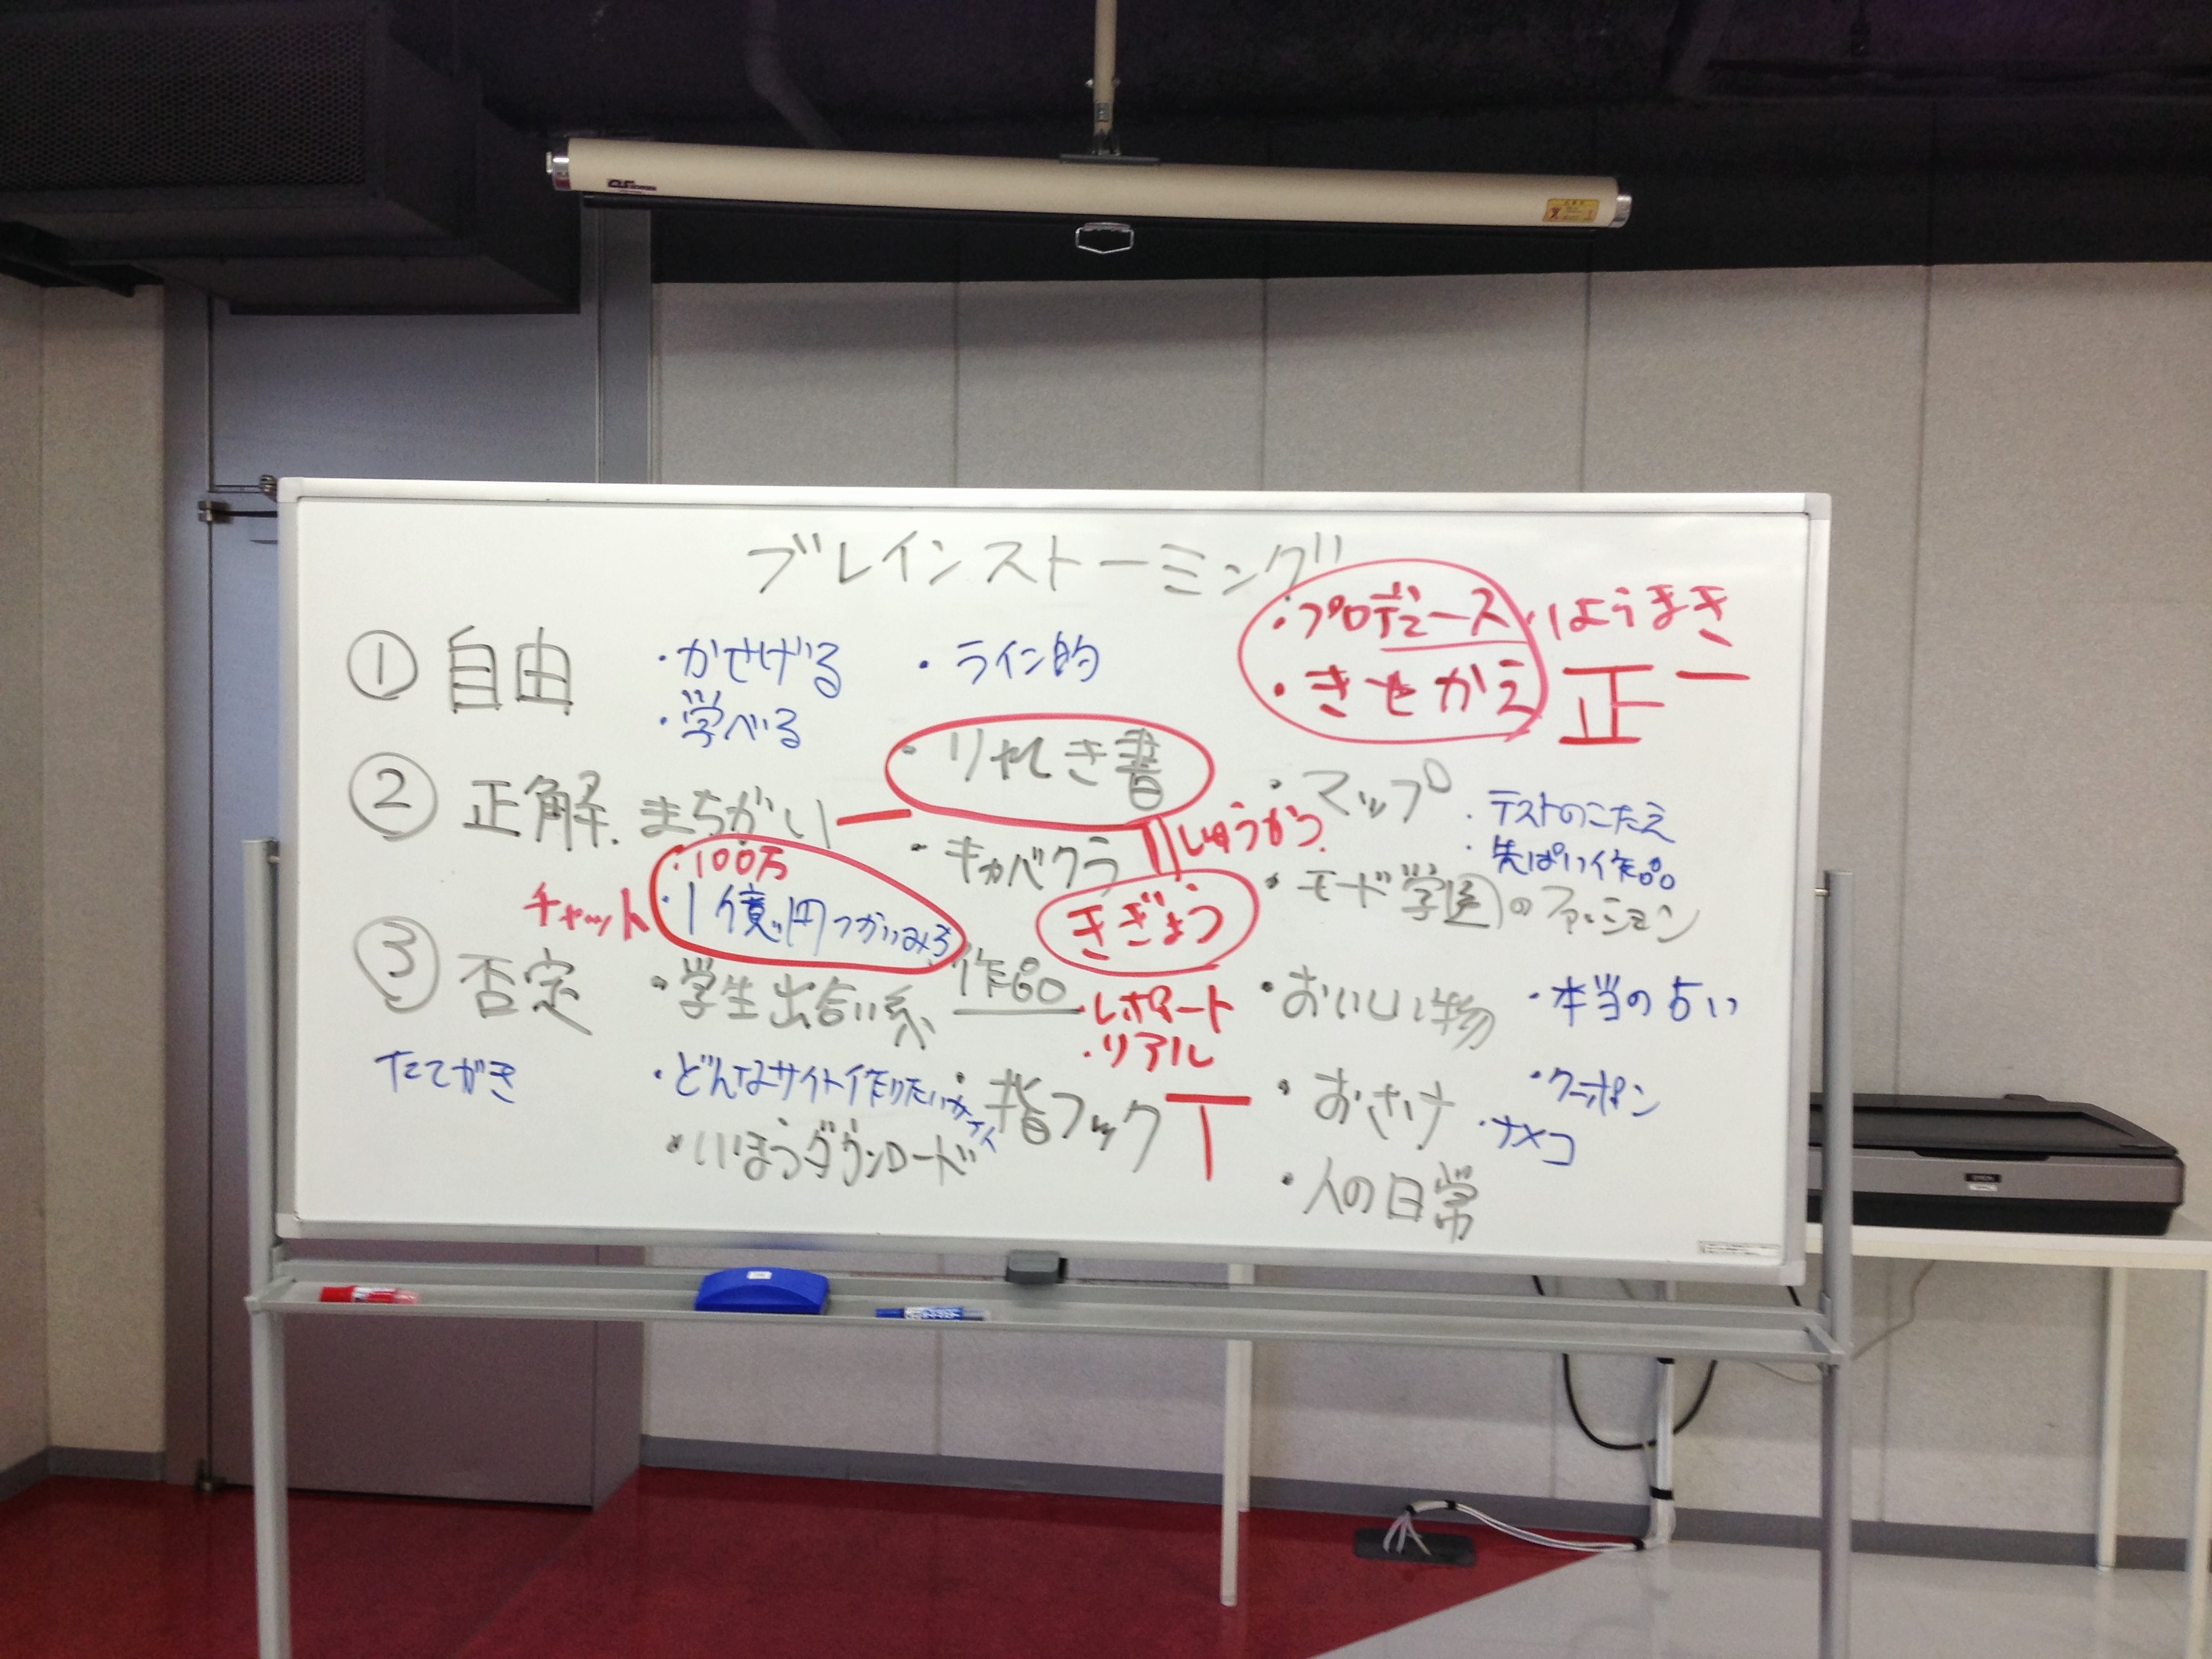 ブレインストーミング
① 自由
・かせげる
・学べる
・ライン的
・プロデュース
・きせかえ
・はらまき
正一
② 正解、まちがい
一
・りれき書
・キャバクラ
しゅうかつ
きぎょう
・マップ
・テストのこたえ
・先ぱい作品
・モード学園のファッション
チャット
・100万
・1億円つかいみち
③ 否定
・学生出会い系
作品
・レポート
・リアル
・おいしい物
・本当の占い
たてがき
・どんなサイト作りたいか
・いほうダウンロード
・指フック
・おさけ
・クーポン
・ナメコ
・人の日常